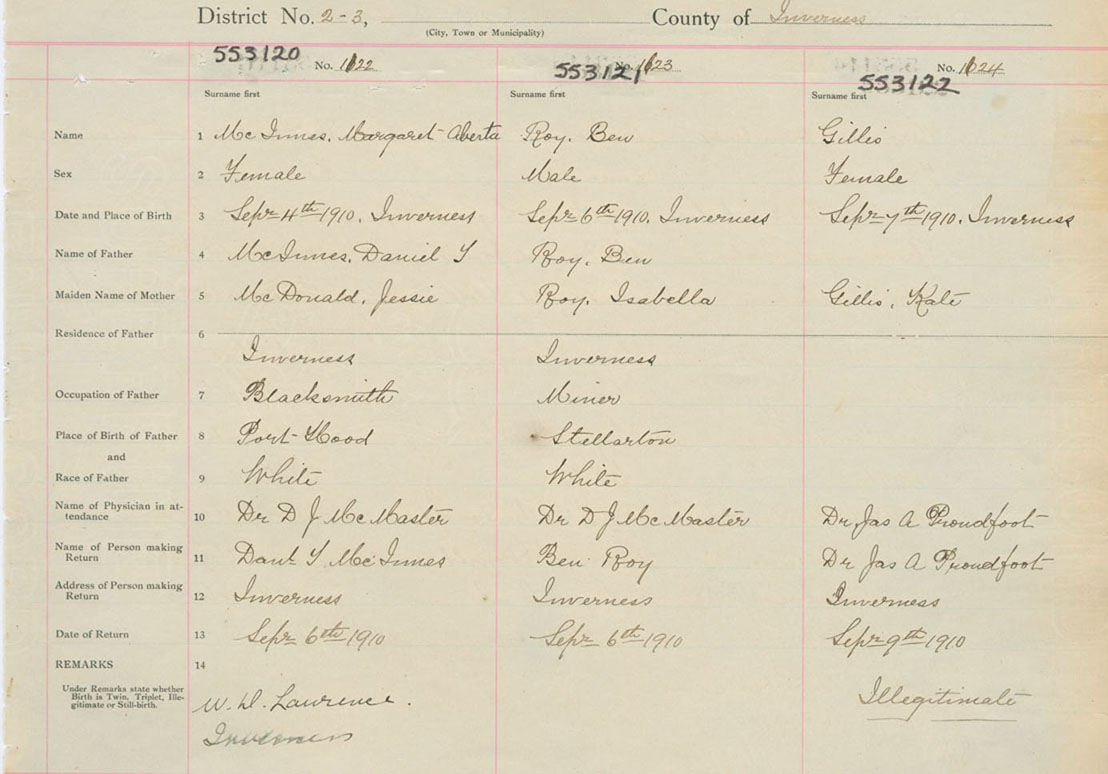 District No. 2-3, County of Inverness
(City, Town or Municipality)
553120 No. 1622 553121 No. 1623 No. 1624
553122
Surname first Surname first Surname first
Name 1 McInnes, Margaret Aberta Roy, Ben Gillis
Sex 2 Female Male Female
Date and Place of Birth 3 Sepr 4th 1910, Inverness Sepr 6th 1910, Inverness Sepr 7th 1910, Inverness
Name of Father 4 McInnes, Daniel Y Roy, Ben
Maiden Name of Mother 5 McDonald, Jessie Roy, Isabella Gillis, Kate
Residence of Father 6
Inverness Inverness
Occupation of Father 7 Blacksmith Miner
Place of Birth of Father 8 Port Hood Stellarton
and
Race of Father 9 White White
Name of Physician in at-
tendance 10 Dr D J McMaster Dr D J McMaster Dr Jas A Proudfoot
Name of Person making
Return 11 Danl Y McInnes Ben Roy Dr Jas A Proudfoot
Address of Person making
Return 12 Inverness Inverness Inverness
Date of Return 13 Sepr 6th 1910 Sepr 6th 1910 Sepr 9th 1910
REMARKS 14
Under Remarks state whether
Birth is Twin, Triplet, Ille-
gitimate or Still-birth.
W. D. Lawrence.
Inverness
Illegitimate